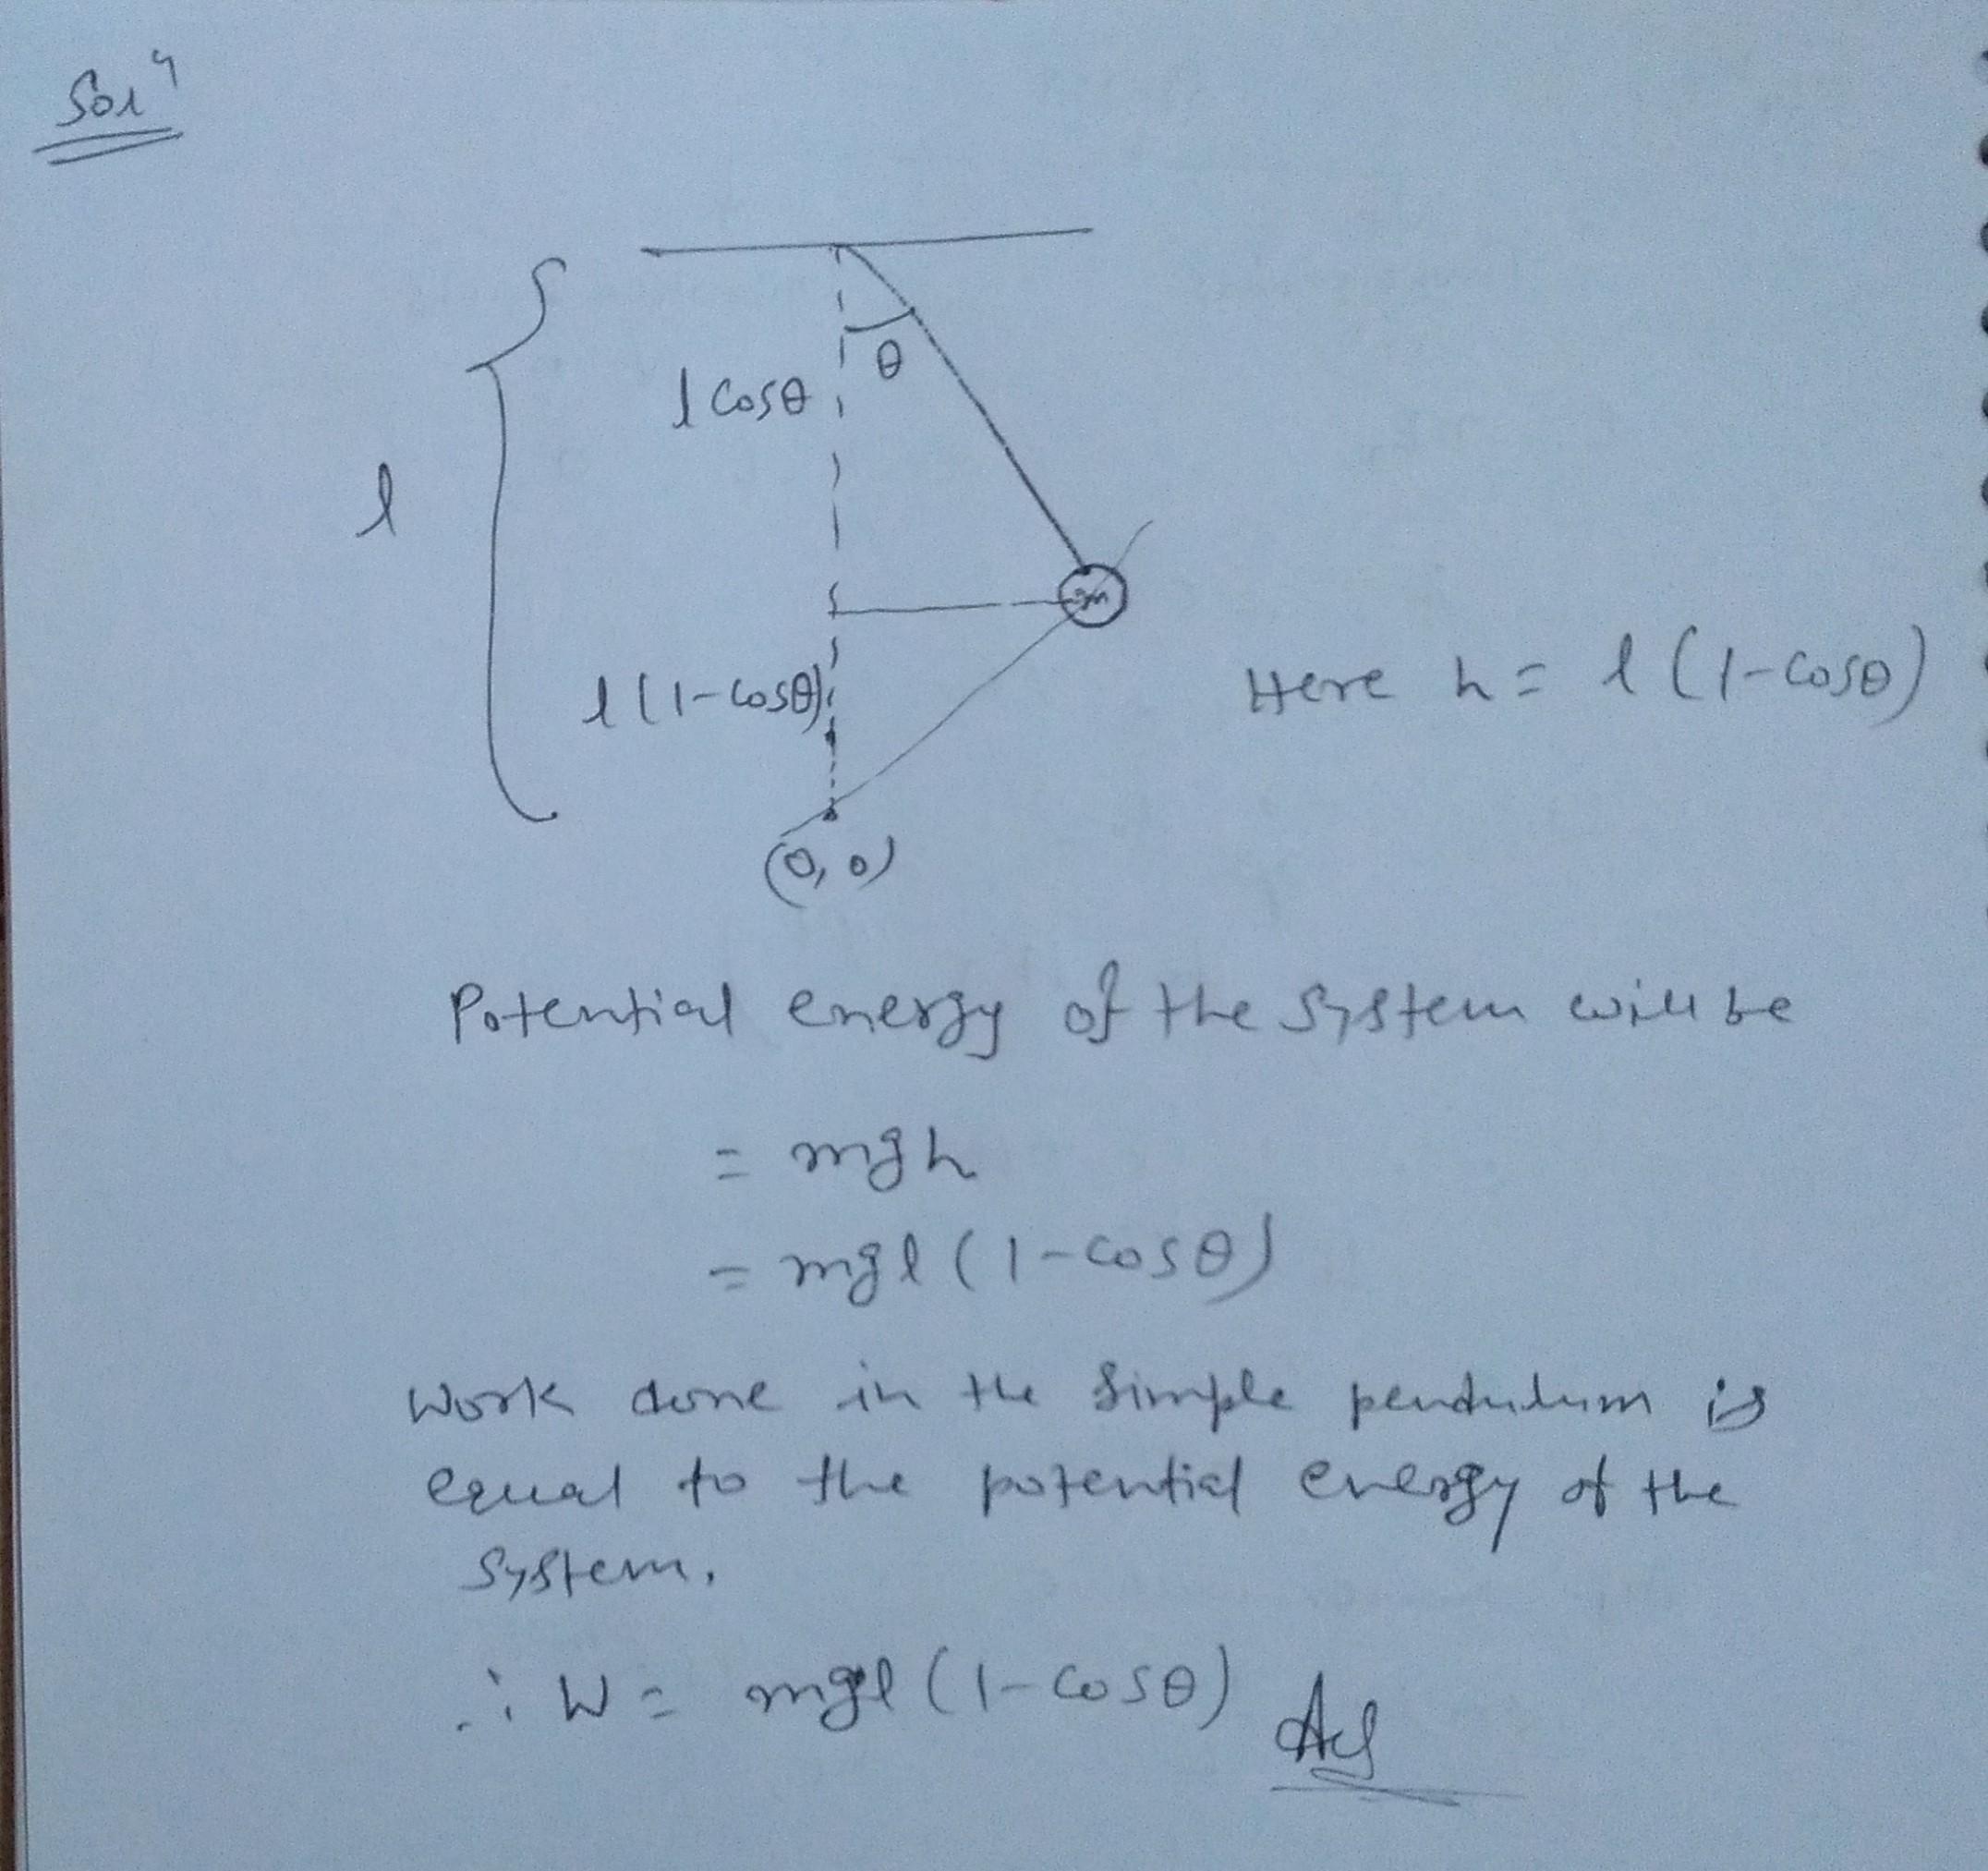 Sol<sup>n</sup>
θ
l cosθ
l
m
l(1-cosθ)
Here h = l(1-cosθ)
(0,0)
Potential energy of the system will be
= mgh
= mgl(1-cosθ)
Work done in the simple pendulum is
equal to the potential energy of the
system.
∴ W = mgl(1-cosθ)